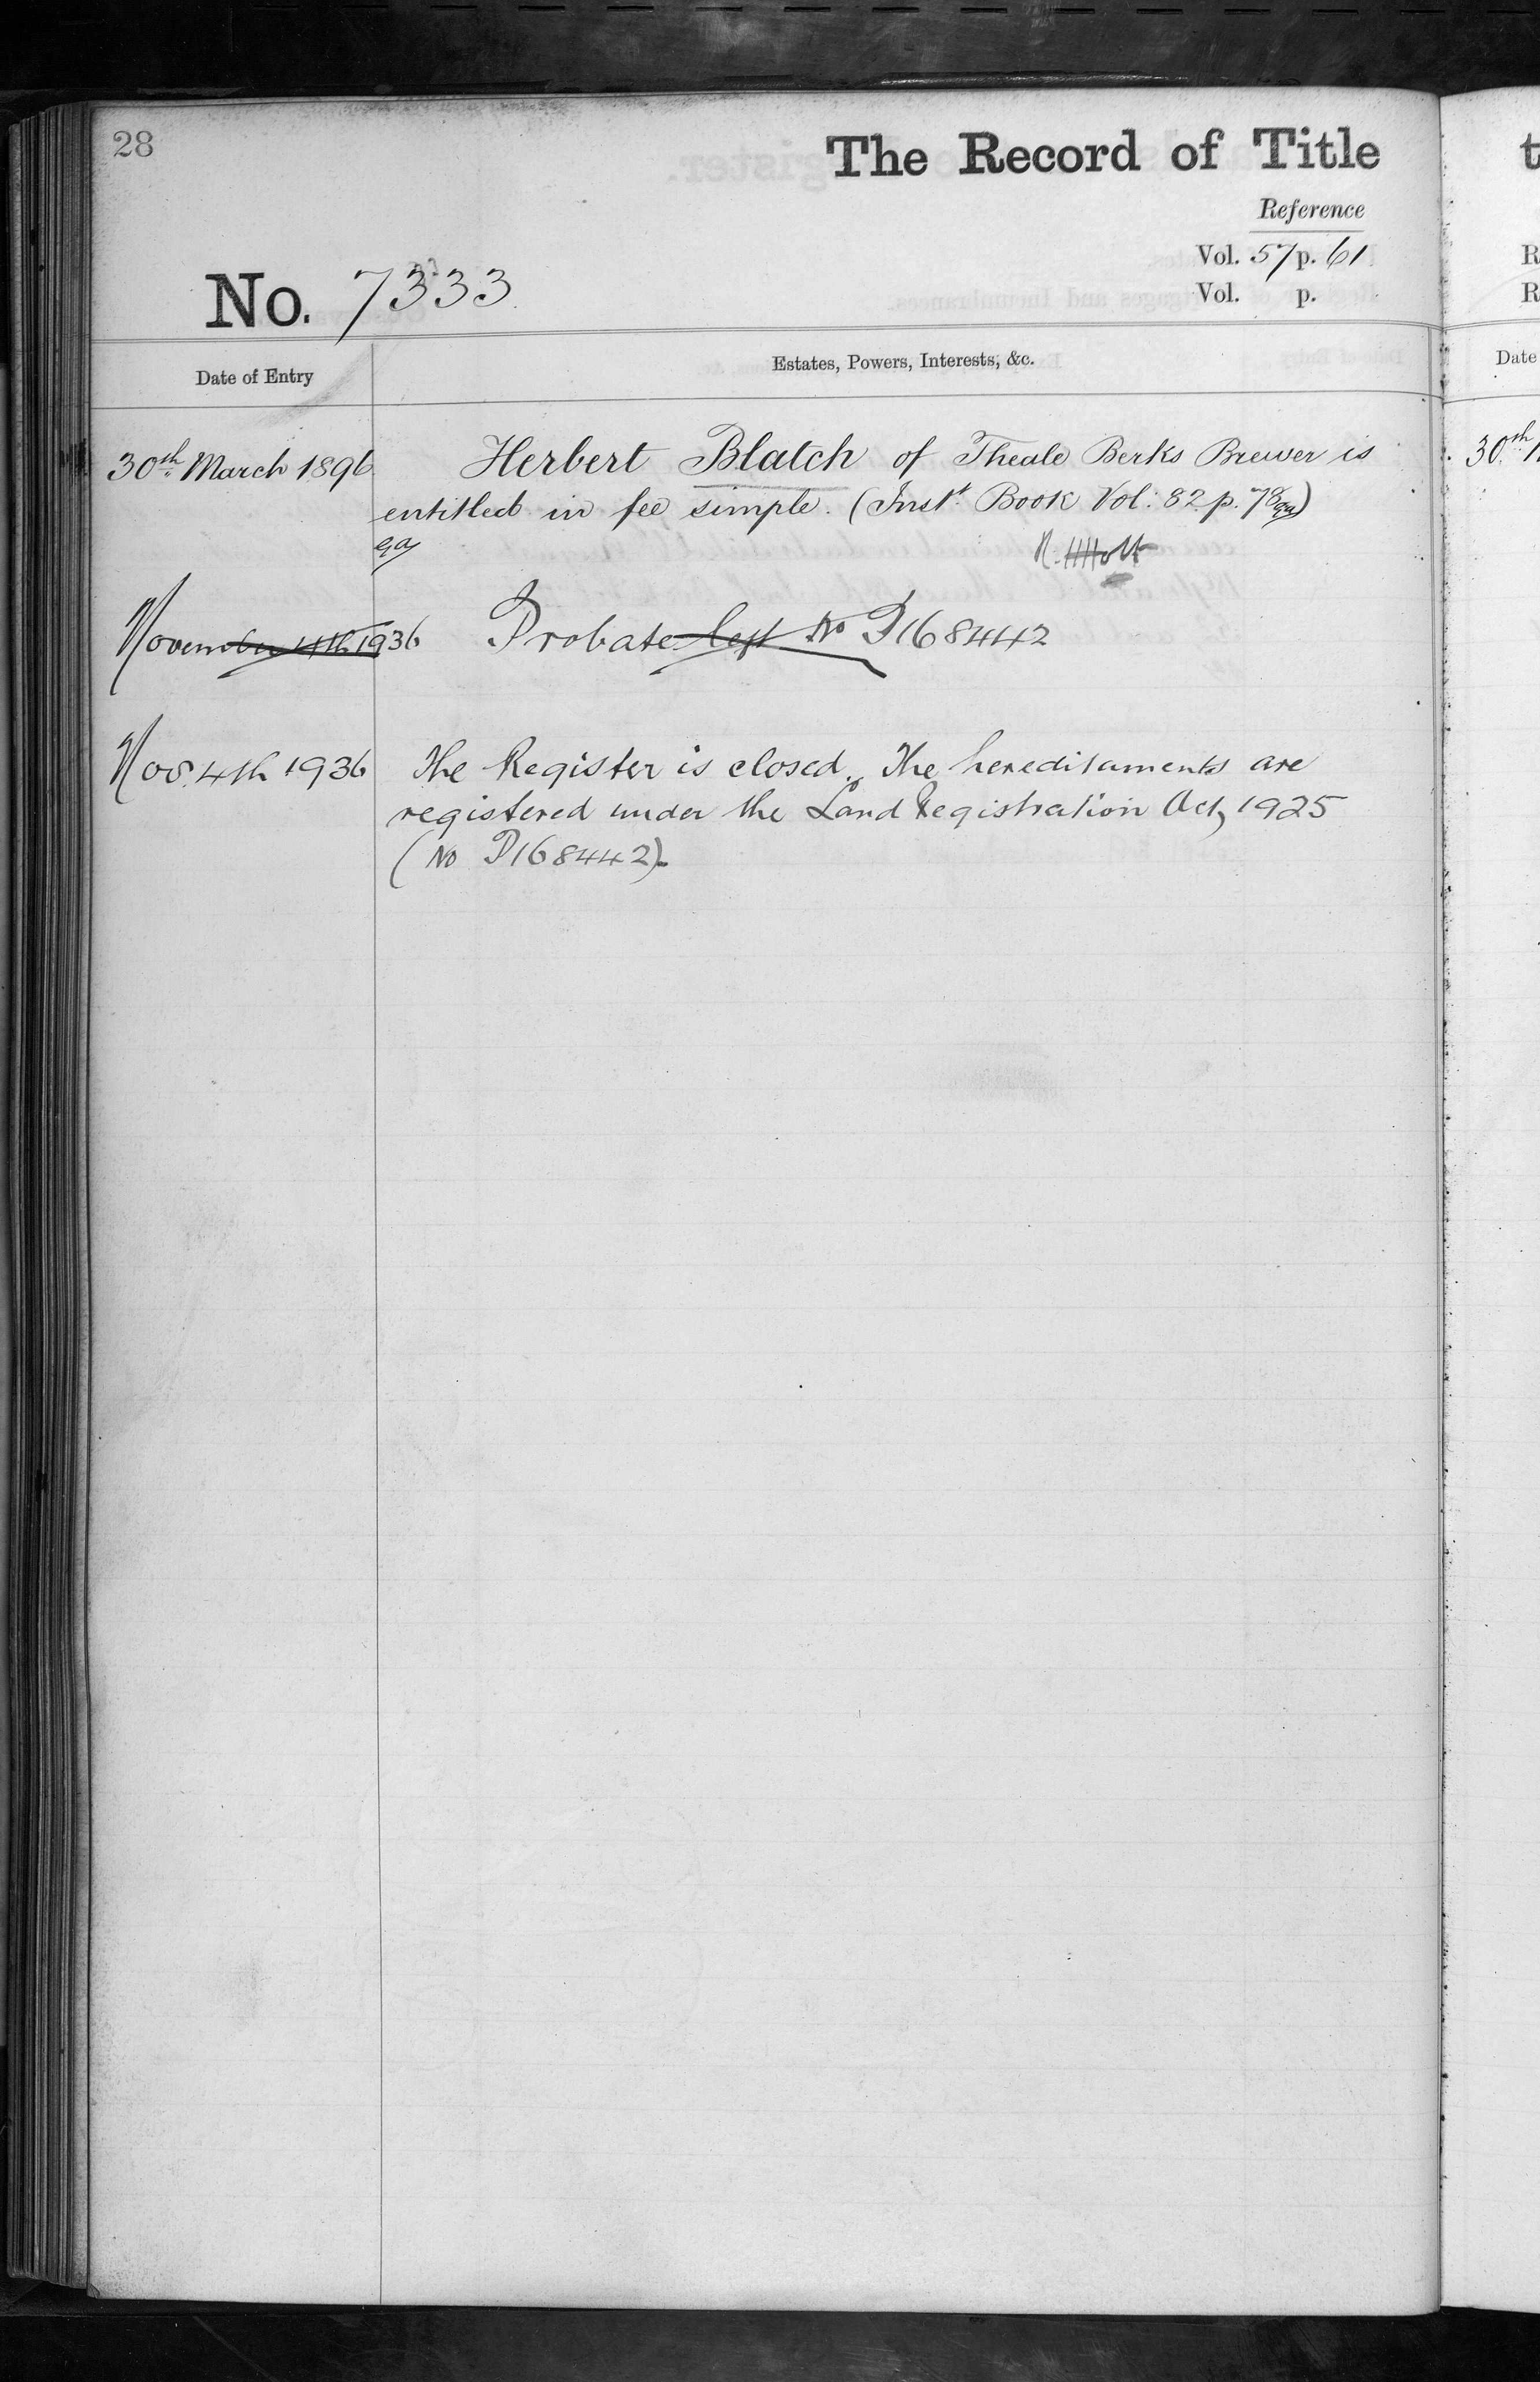 28
The Record of Title
Reference
Vol. 57 p. 61
No. 7333
Vol. p.
Date of Entry
Estates, Powers, Interests, &c.
30th March 1896
Herbert Blatch of Theale Berks Brewer is
entitled in fee simple. (Inst. Book Vol: 82 p. 78)
November 4th 1936
Probate left No P168442
Nov. 4th 1936
The Register is closed. The hereditaments are
registered under the Land Registration Act, 1925
(No P168442).
t
R
R
Date
30th